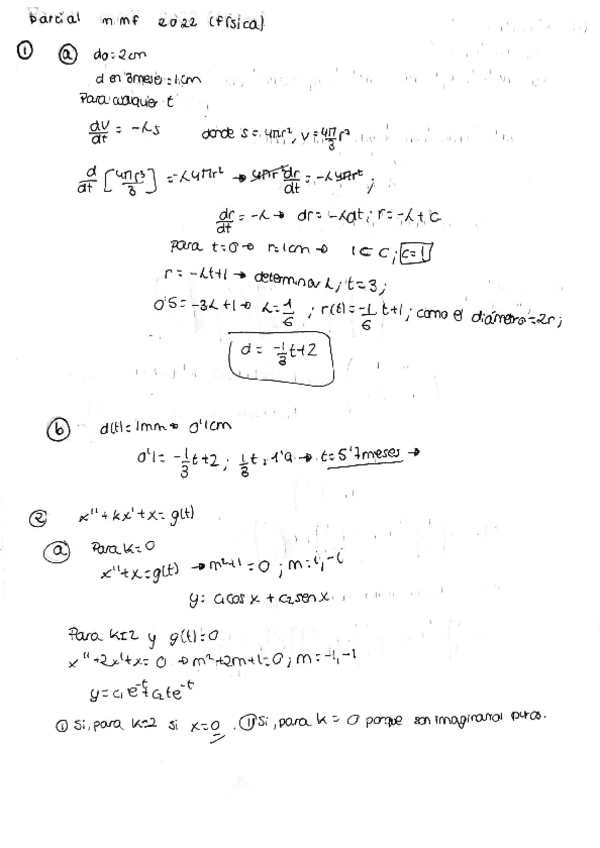 Parcial mmf 2022 (física)
① ⓐ do=2cm
d en 3meses=1cm
Para cualquier t
dV/dt = -λs donde s=4πr², v=4π/3 r³
d/dt [4πr³/3] = -λ4πr² → 4πr² dr/dt = -λ4πr² ;
dr/dt = -λ → dr=-λdt; r=-λ+c
para t=0 → r=1cm → 1=c; c=1
r=-λt+1 → determinar λ; t=3;
0'5=-3λ+1 → λ=1/6 ; r(t)=-1/6 t+1; como el diámetro=2r;
d = -1/3 t+2
ⓑ d(t)=1mm → 0'1cm
0'1=-1/3 t+2; 1/3 t=1'9 → t=5'7meses →
② x''+kx'+x=g(t)
ⓐ Para k=0
x''+x=g(t) → m²+1=0; m=i,-i
y= c₁cos x + c₂sen x
Para k=2 y g(t)=0
x''+2x'+x=0 → m²+2m+1=0; m=-1,-1
y=c₁e⁻ᵗ+c₂te⁻ᵗ
① Si, para k=2 si x=0. ⑪ Si, para k=0 porque son imaginarios puros.